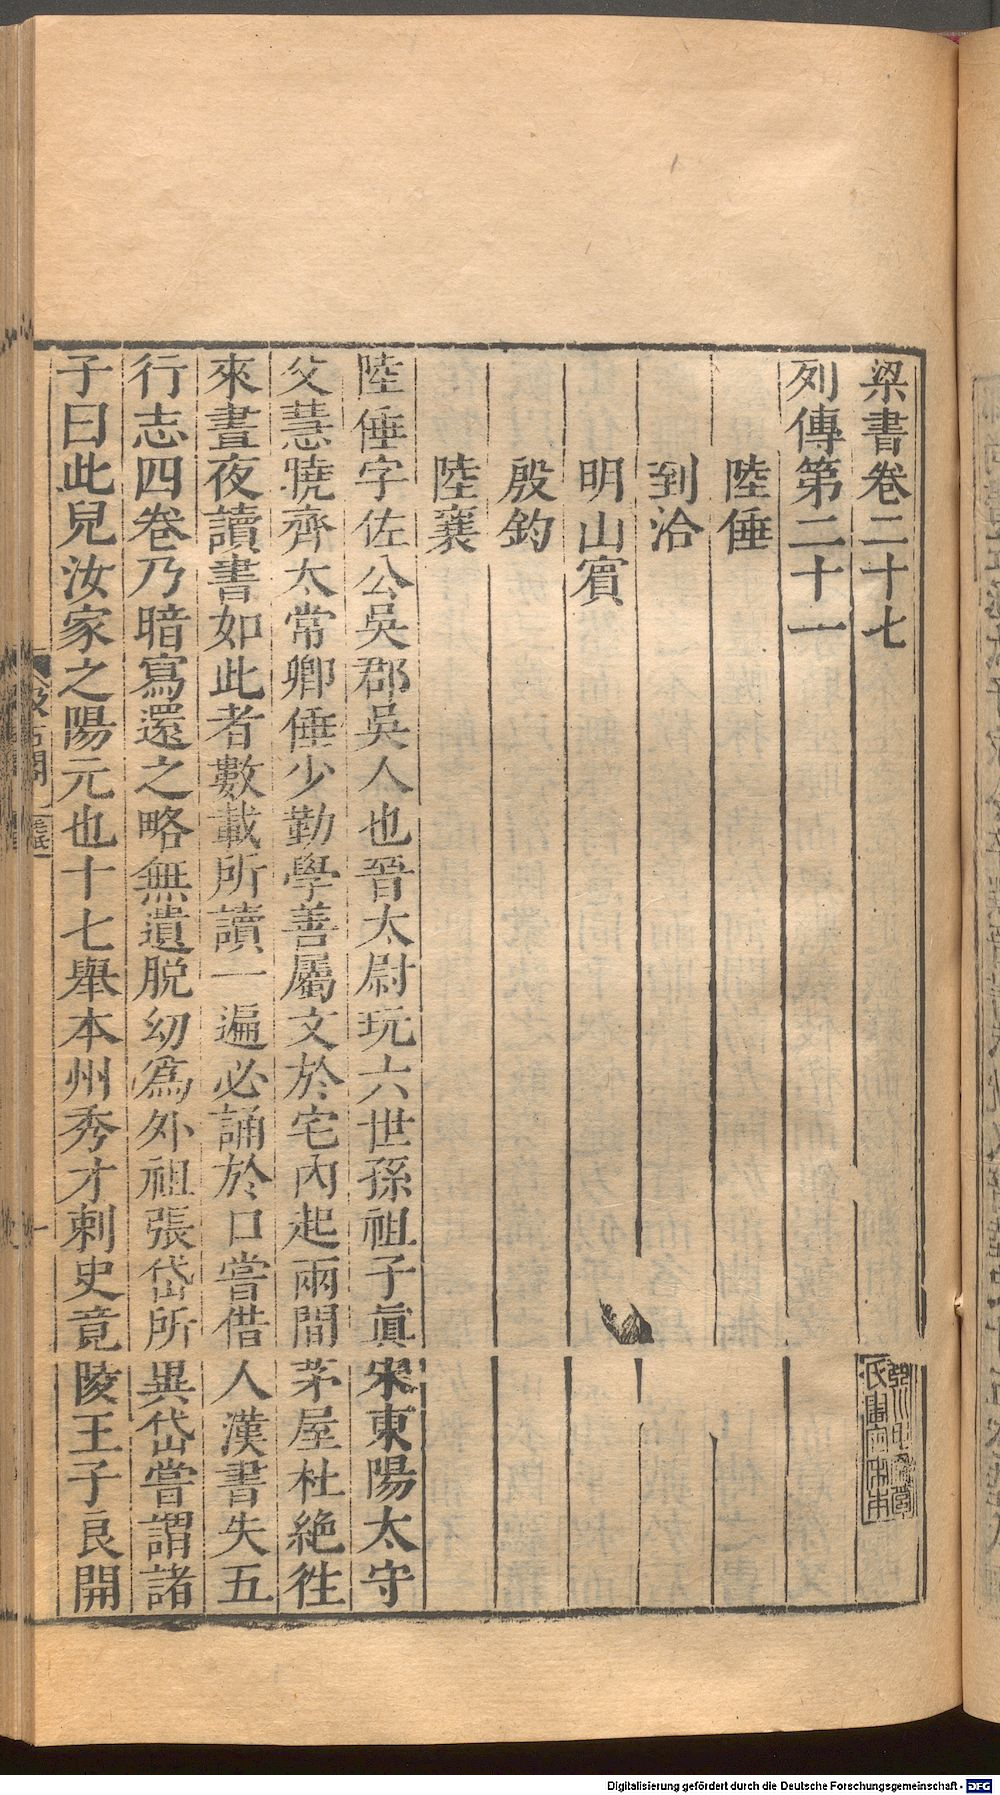 梁書卷二十七
列傳第二十一
陸倕
到洽
明山賓
殷鈞
陸襄
陸倕字佐公吳郡吳人也晉太尉玩六世孫祖子眞宋東陽太守
父慧曉齊太常卿倕少勤學善屬文於宅內起兩間茅屋杜絕徃
來晝夜讀書如此者數載所讀一遍必誦於口嘗借人漢書失五
行志四卷乃暗寫還之略無遺脱幼爲外祖張岱所異岱嘗謂諸
子曰此兒汝家之陽元也十七舉本州秀才刺史竟陵王子良開
汲古閣
毛氏
一
Digitalisierung gefördert durch die Deutsche Forschungsgemeinschaft - DFG